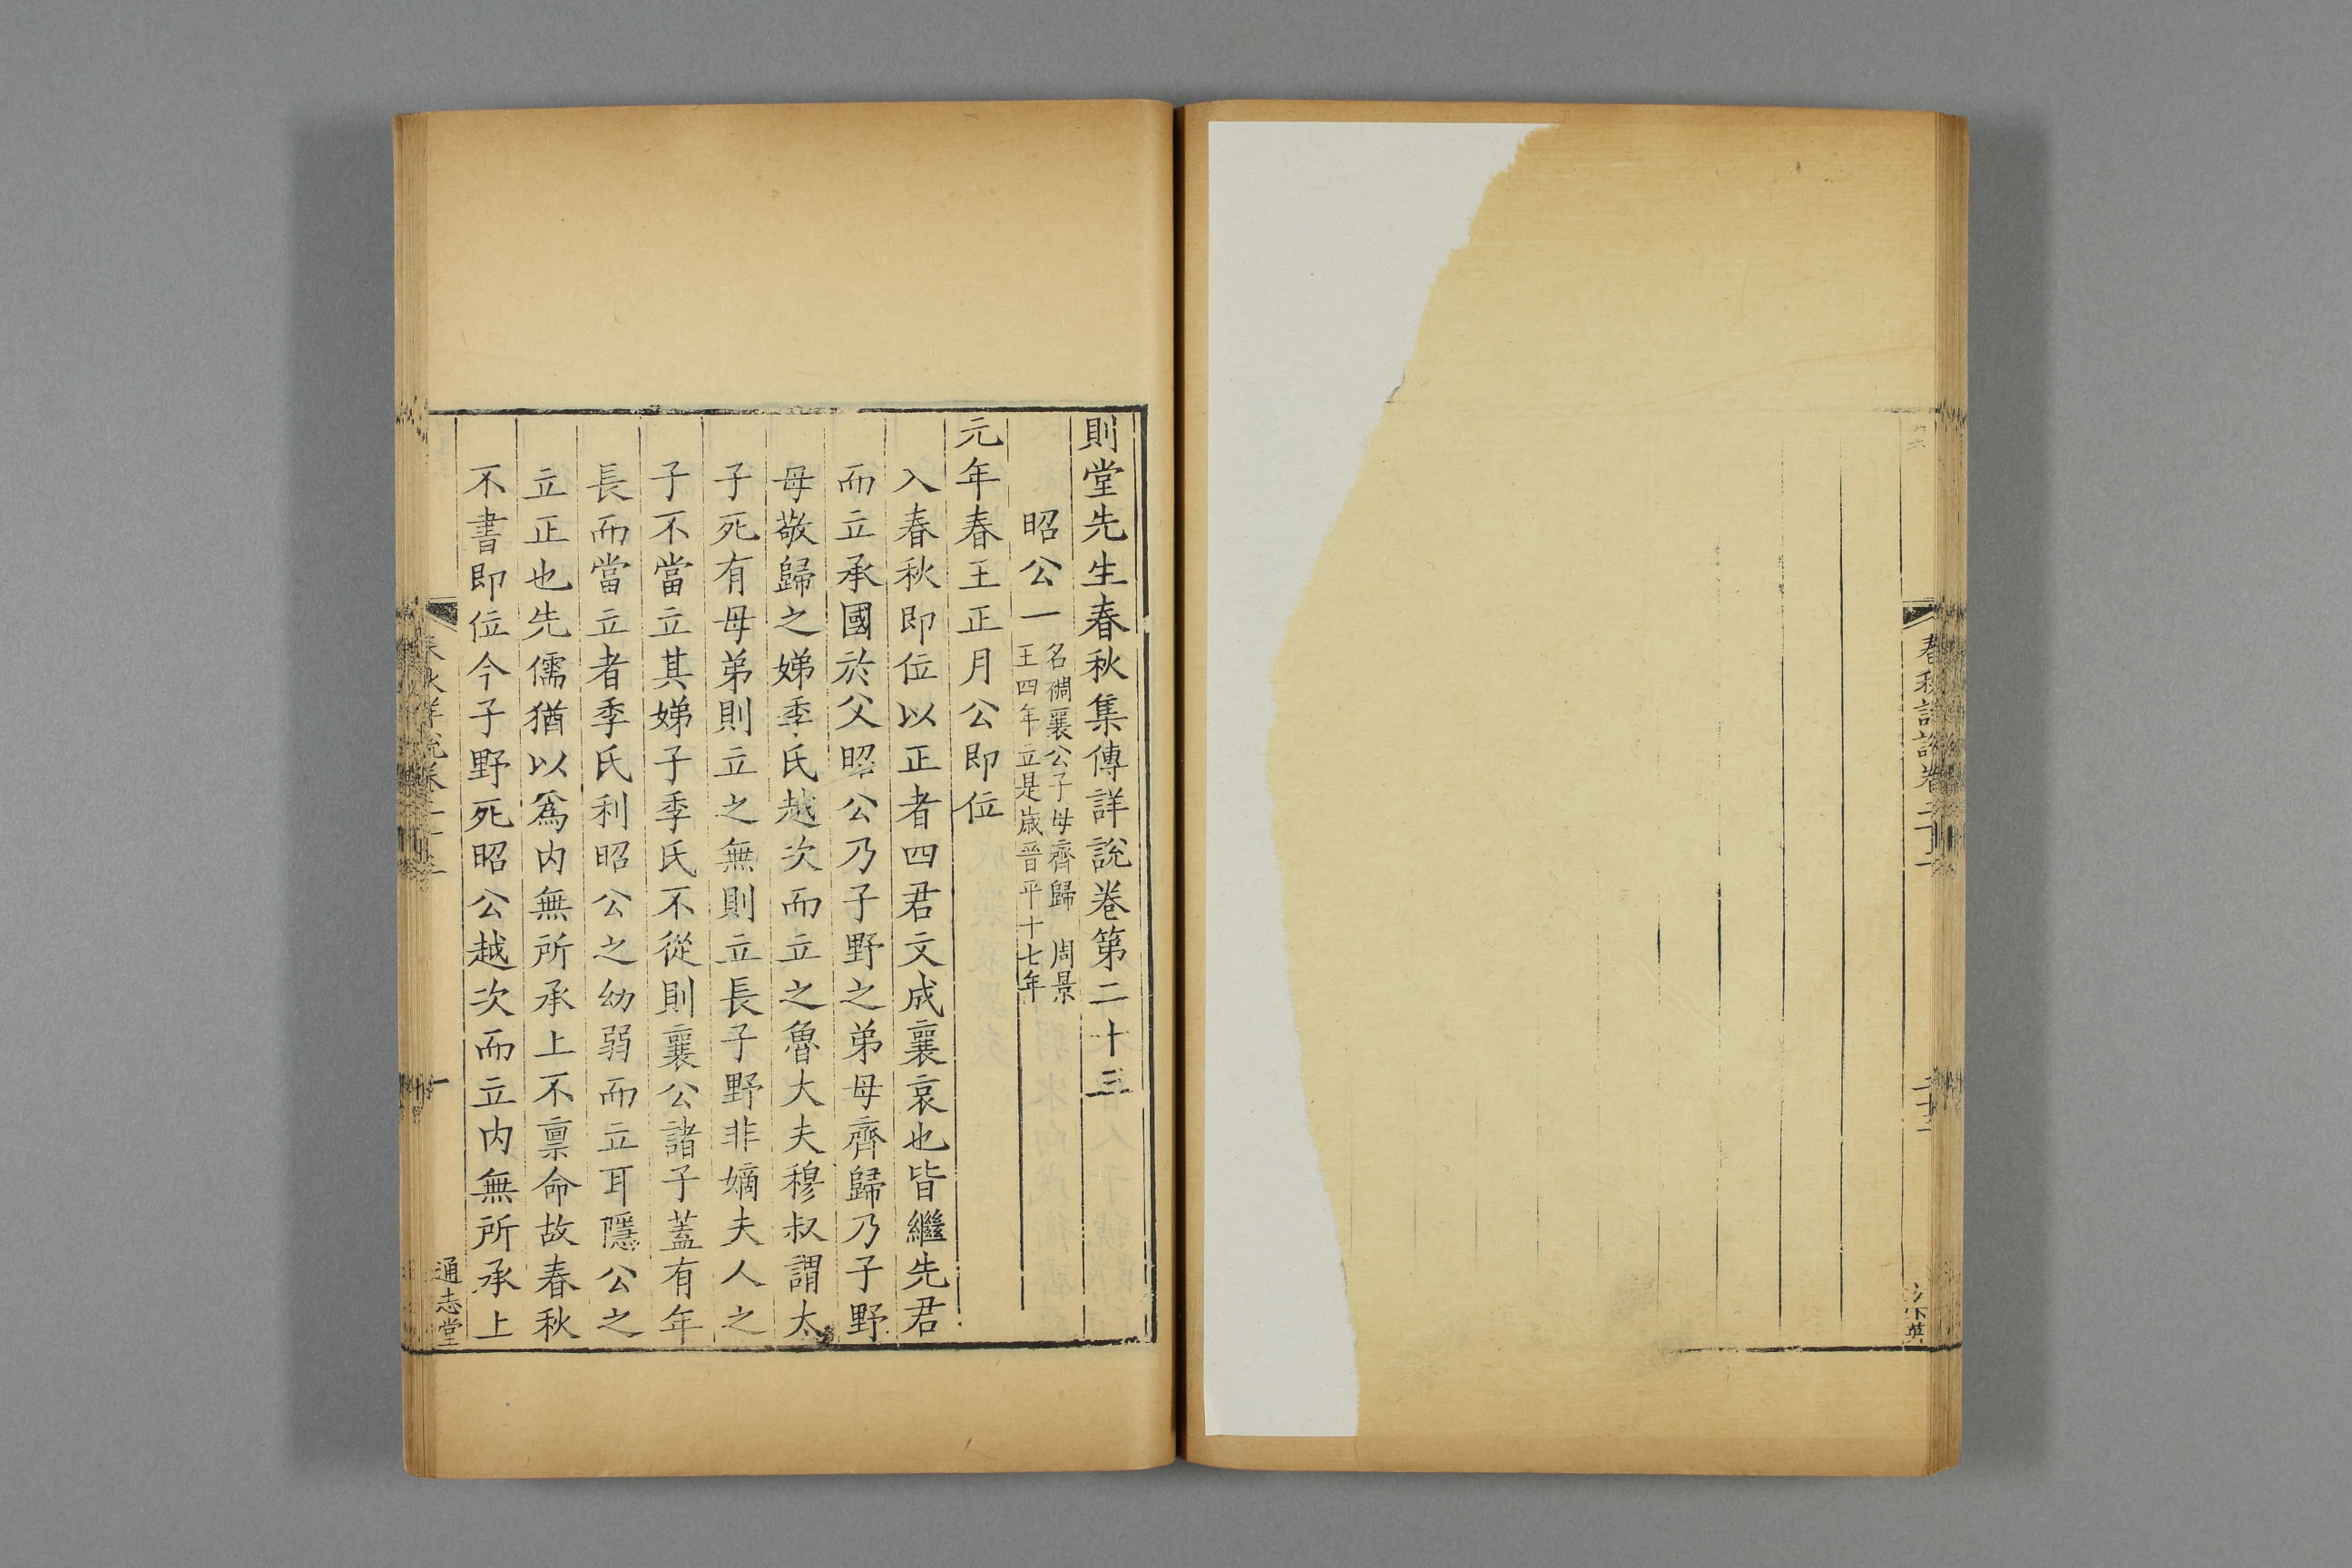 則堂先生春秋集傳詳說卷第二十三
昭公一
名裯襄公子母齊歸 周景
王四年立是歲晉平十七年
元年春王正月公即位
入春秋即位以正者四君文成襄哀也皆繼先君
而立承國於父昭公乃子野之弟母齊歸乃子野
母敬歸之娣季氏越次而立之魯大夫穆叔謂太
子死有母弟則立之無則立長子野非嫡夫人之
子不當立其娣子季氏不從則襄公諸子蓋有年
長而當立者季氏利昭公之幼弱而立耳隱公之
立正也先儒猶以爲内無所承上不稟命故春秋
不書即位今子野死昭公越次而立内無所承上
通志堂